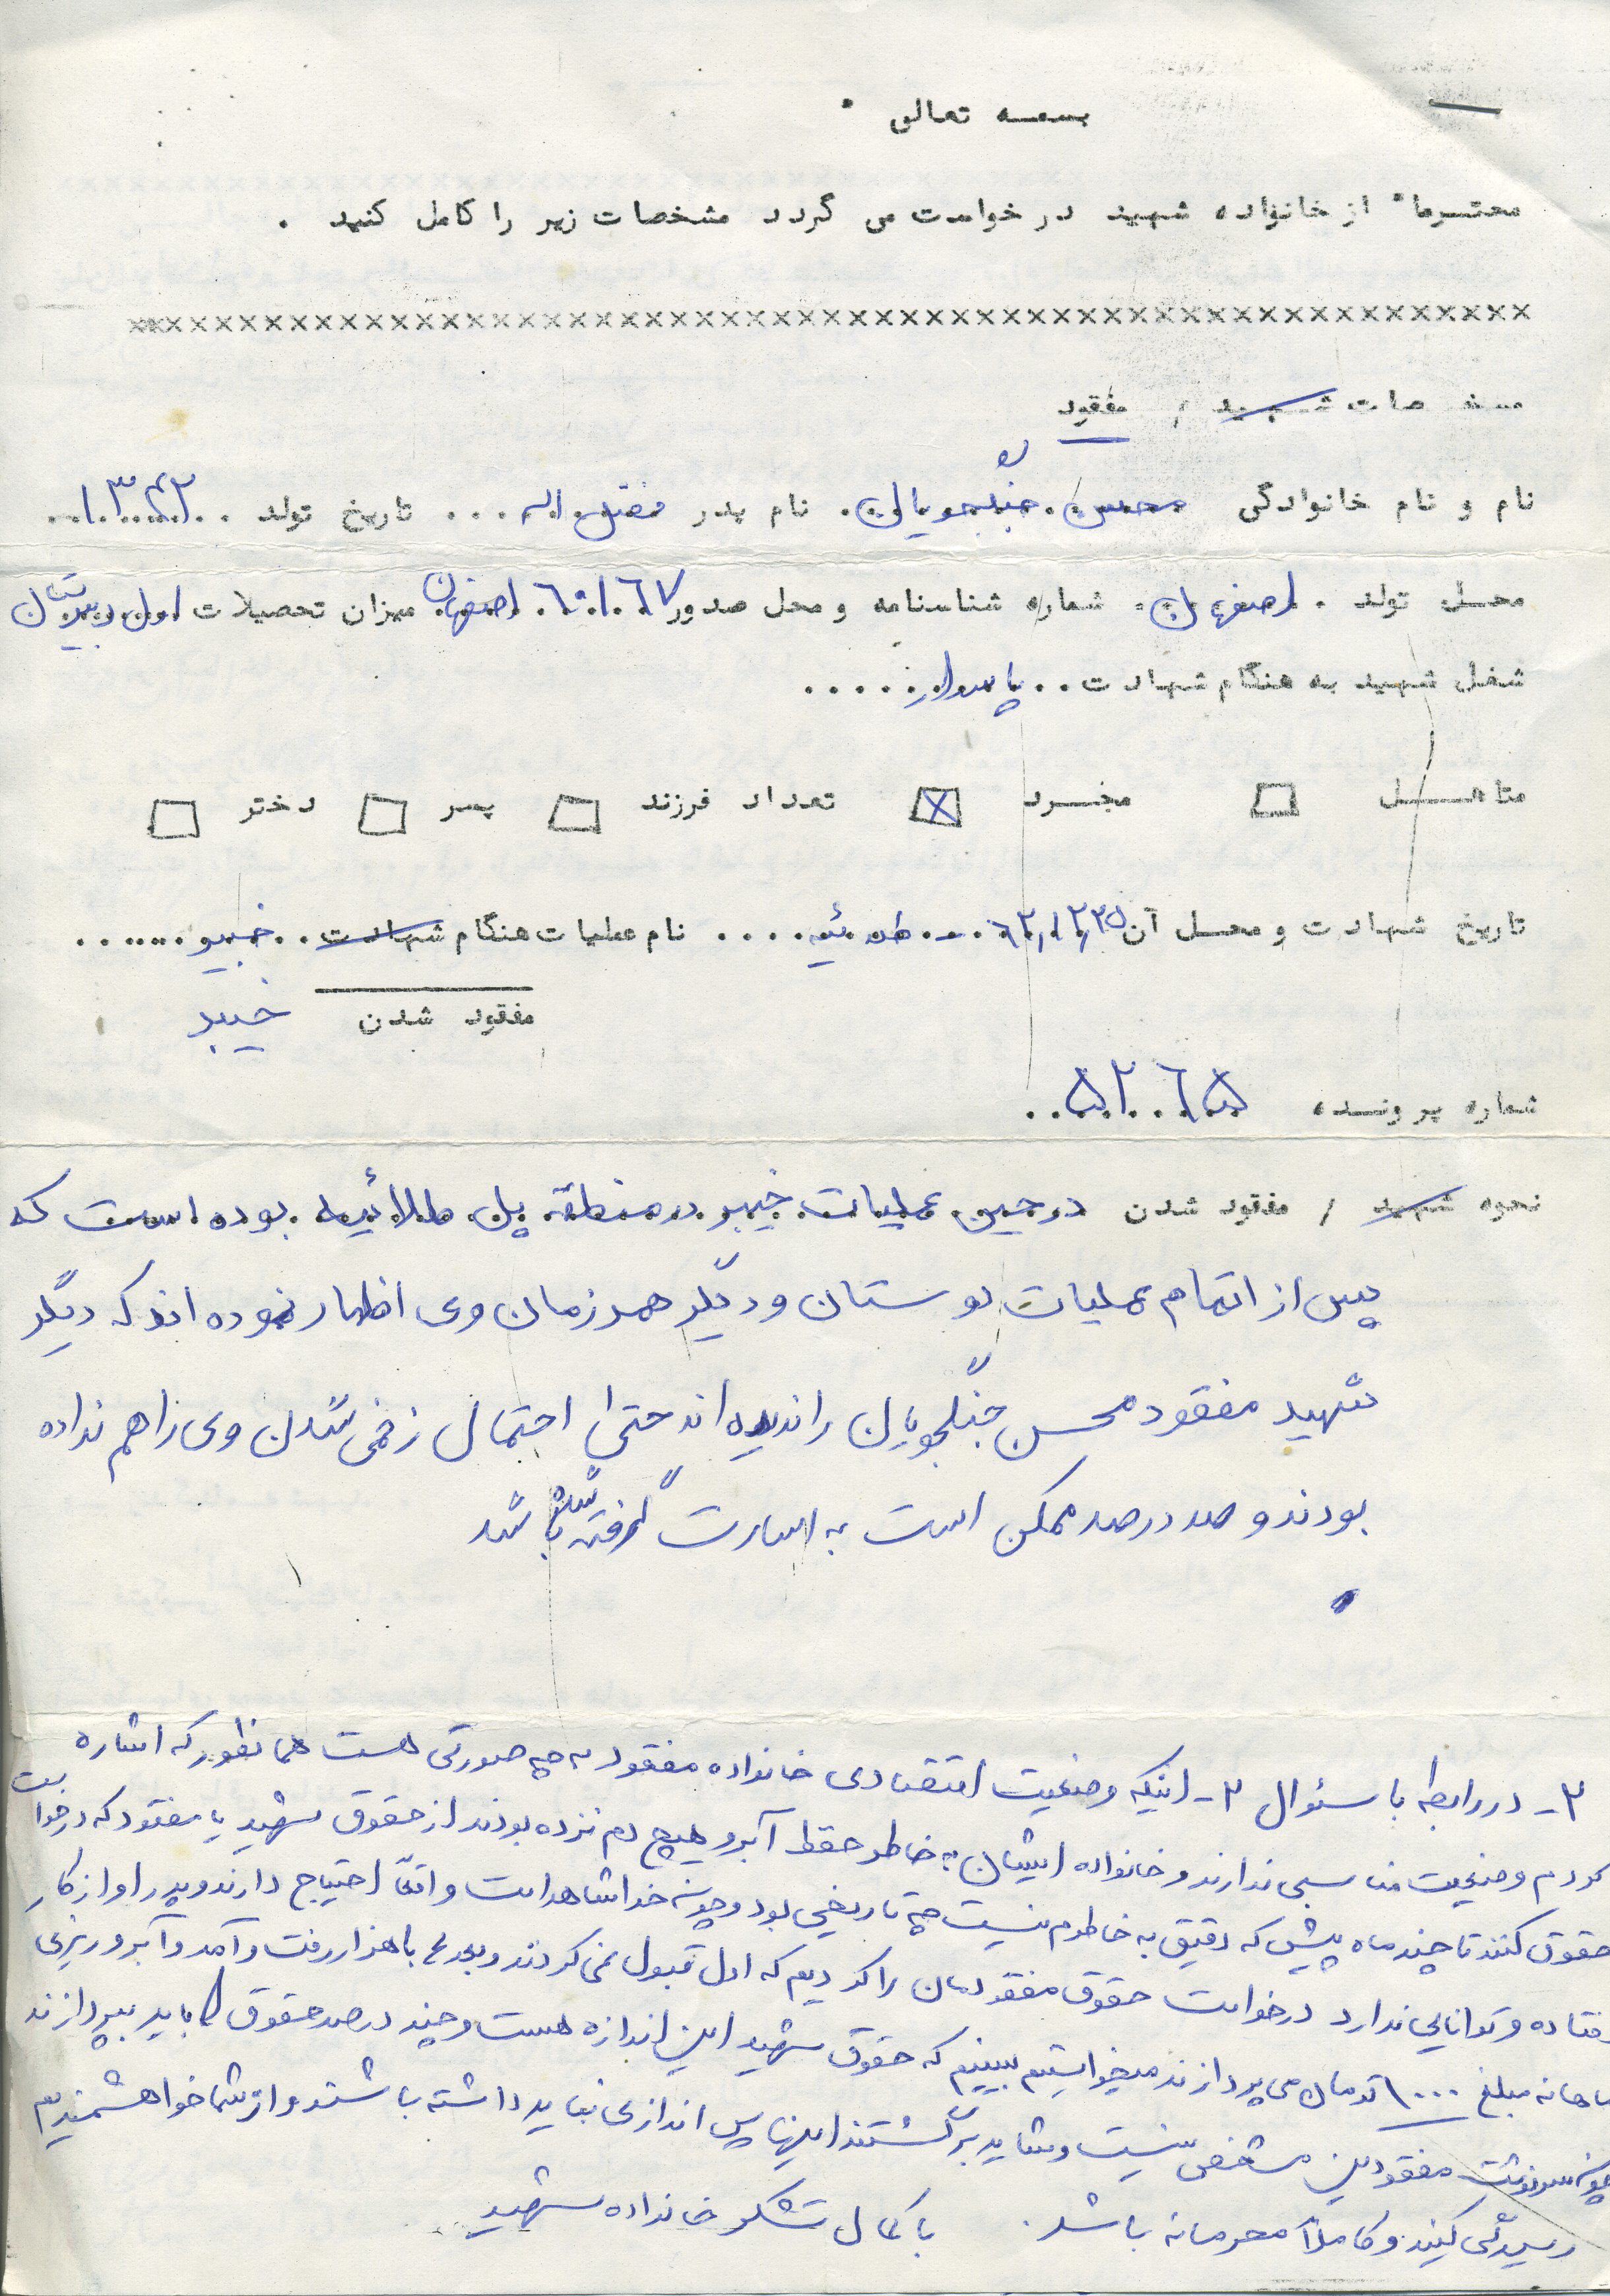 بسمه تعالی
محترما" از خانواده شهید درخواست می گردد مشخصات زیر را کامل کنید .
××××××××××××××××××××××××××××××××××××××××××××××××××××××××
مشخصات شهید / مفقود
نام و نام خانوادگی محسن جنگجویان نام پدر فضل اله ... تاریخ تولد .. ۱۳۴۲
محل تولد . اصفهان . شماره شناسنامه و محل صدور ۶۰۱۶۷ اصفهان میزان تحصیلات اول دبیرستان
شغل شهید به هنگام شهادت .. پاسدار .....
متاهل □ مجرد ☒ تعداد فرزند □ پسر □ دختر □
تاریخ شهادت و محل آن ... طلائیه .... نام عملیات هنگام شهادت .. خیبر ......
مفقود شدن خیبر
شماره پرونده ۵۲۶۵
نحوه شهید / مفقود شدن در حین عملیات خیبر در منطقه پل طلائیه بوده است که
پس از اتمام عملیات دوستان و دیگر همرزمان وی اظهار نموده اند که دیگر
شهید مفقود محسن جنگجویان را ندیده اند حتی احتمال زخمی شدن وی را هم نداده
بودند و صد در صد ممکن است به اسارت گرفته شده باشد
۲- در رابطه با سئوال ۲- اینکه وضعیت اقتصادی خانواده مفقود به چه صورتی هست همانطور که اشاره
کردم وضعیت مناسبی ندارند و خانواده ایشان به خاطر حفظ آبرو هیچ دم نزده بودند از حقوق شهید یا مفقود که درخواست
حقوق کنند تا چند ماه پیش که دقیق به خاطرم نیست چه تاریخی بود و چون خدا شاهد است واقعاً احتیاج دارند و پدر او از کار
افتاده و توانایی ندارد درخواست حقوق مفقودمان را کردیم که اول قبول نمی کردند و بعد با هزار رفت و آمد و آبرو ریزی
ماهانه مبلغ ۱۰۰۰ تومان می پردازند میخواستیم ببینیم که حقوق شهید این اندازه هست و چند درصد حقوق را باید بپردازند
چون سرنوشت مفقودین مشخص نیست و شاید برگشتند اینها پس اندازی نباید داشته باشند و از شما خواهشمندیم
رسیدگی کنید و کاملاً محرمانه باشد . با کمال تشکر خانواده شهید